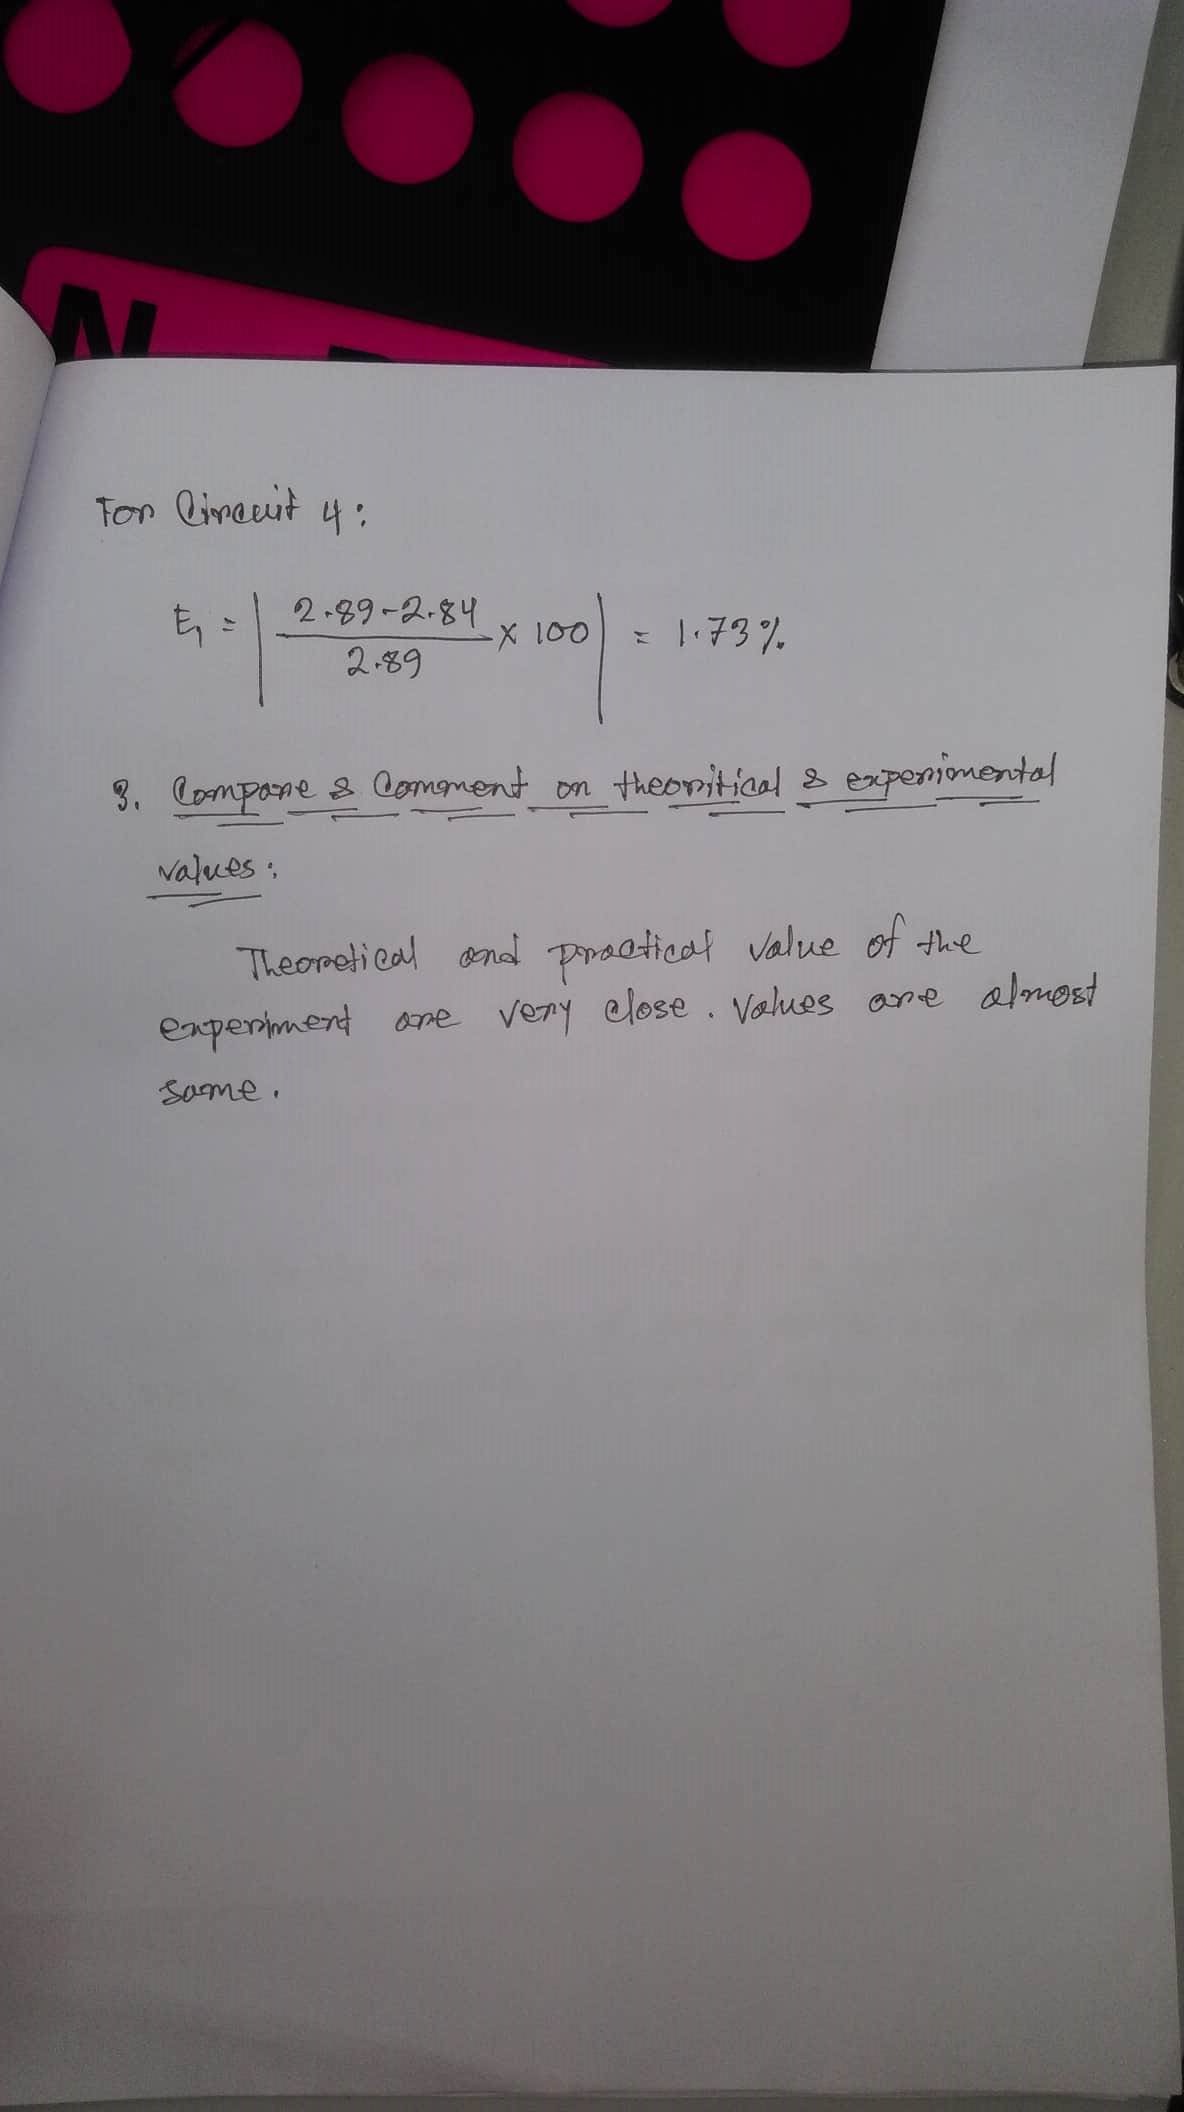 N
For Circuit 4:
E1 = | 2.89-2.84 / 2.89 × 100 | = 1.73%
3. Compare & Comment on theoritical & experimental
values:
Theoretical and practical value of the
experiment are very close. Values are almost
same.